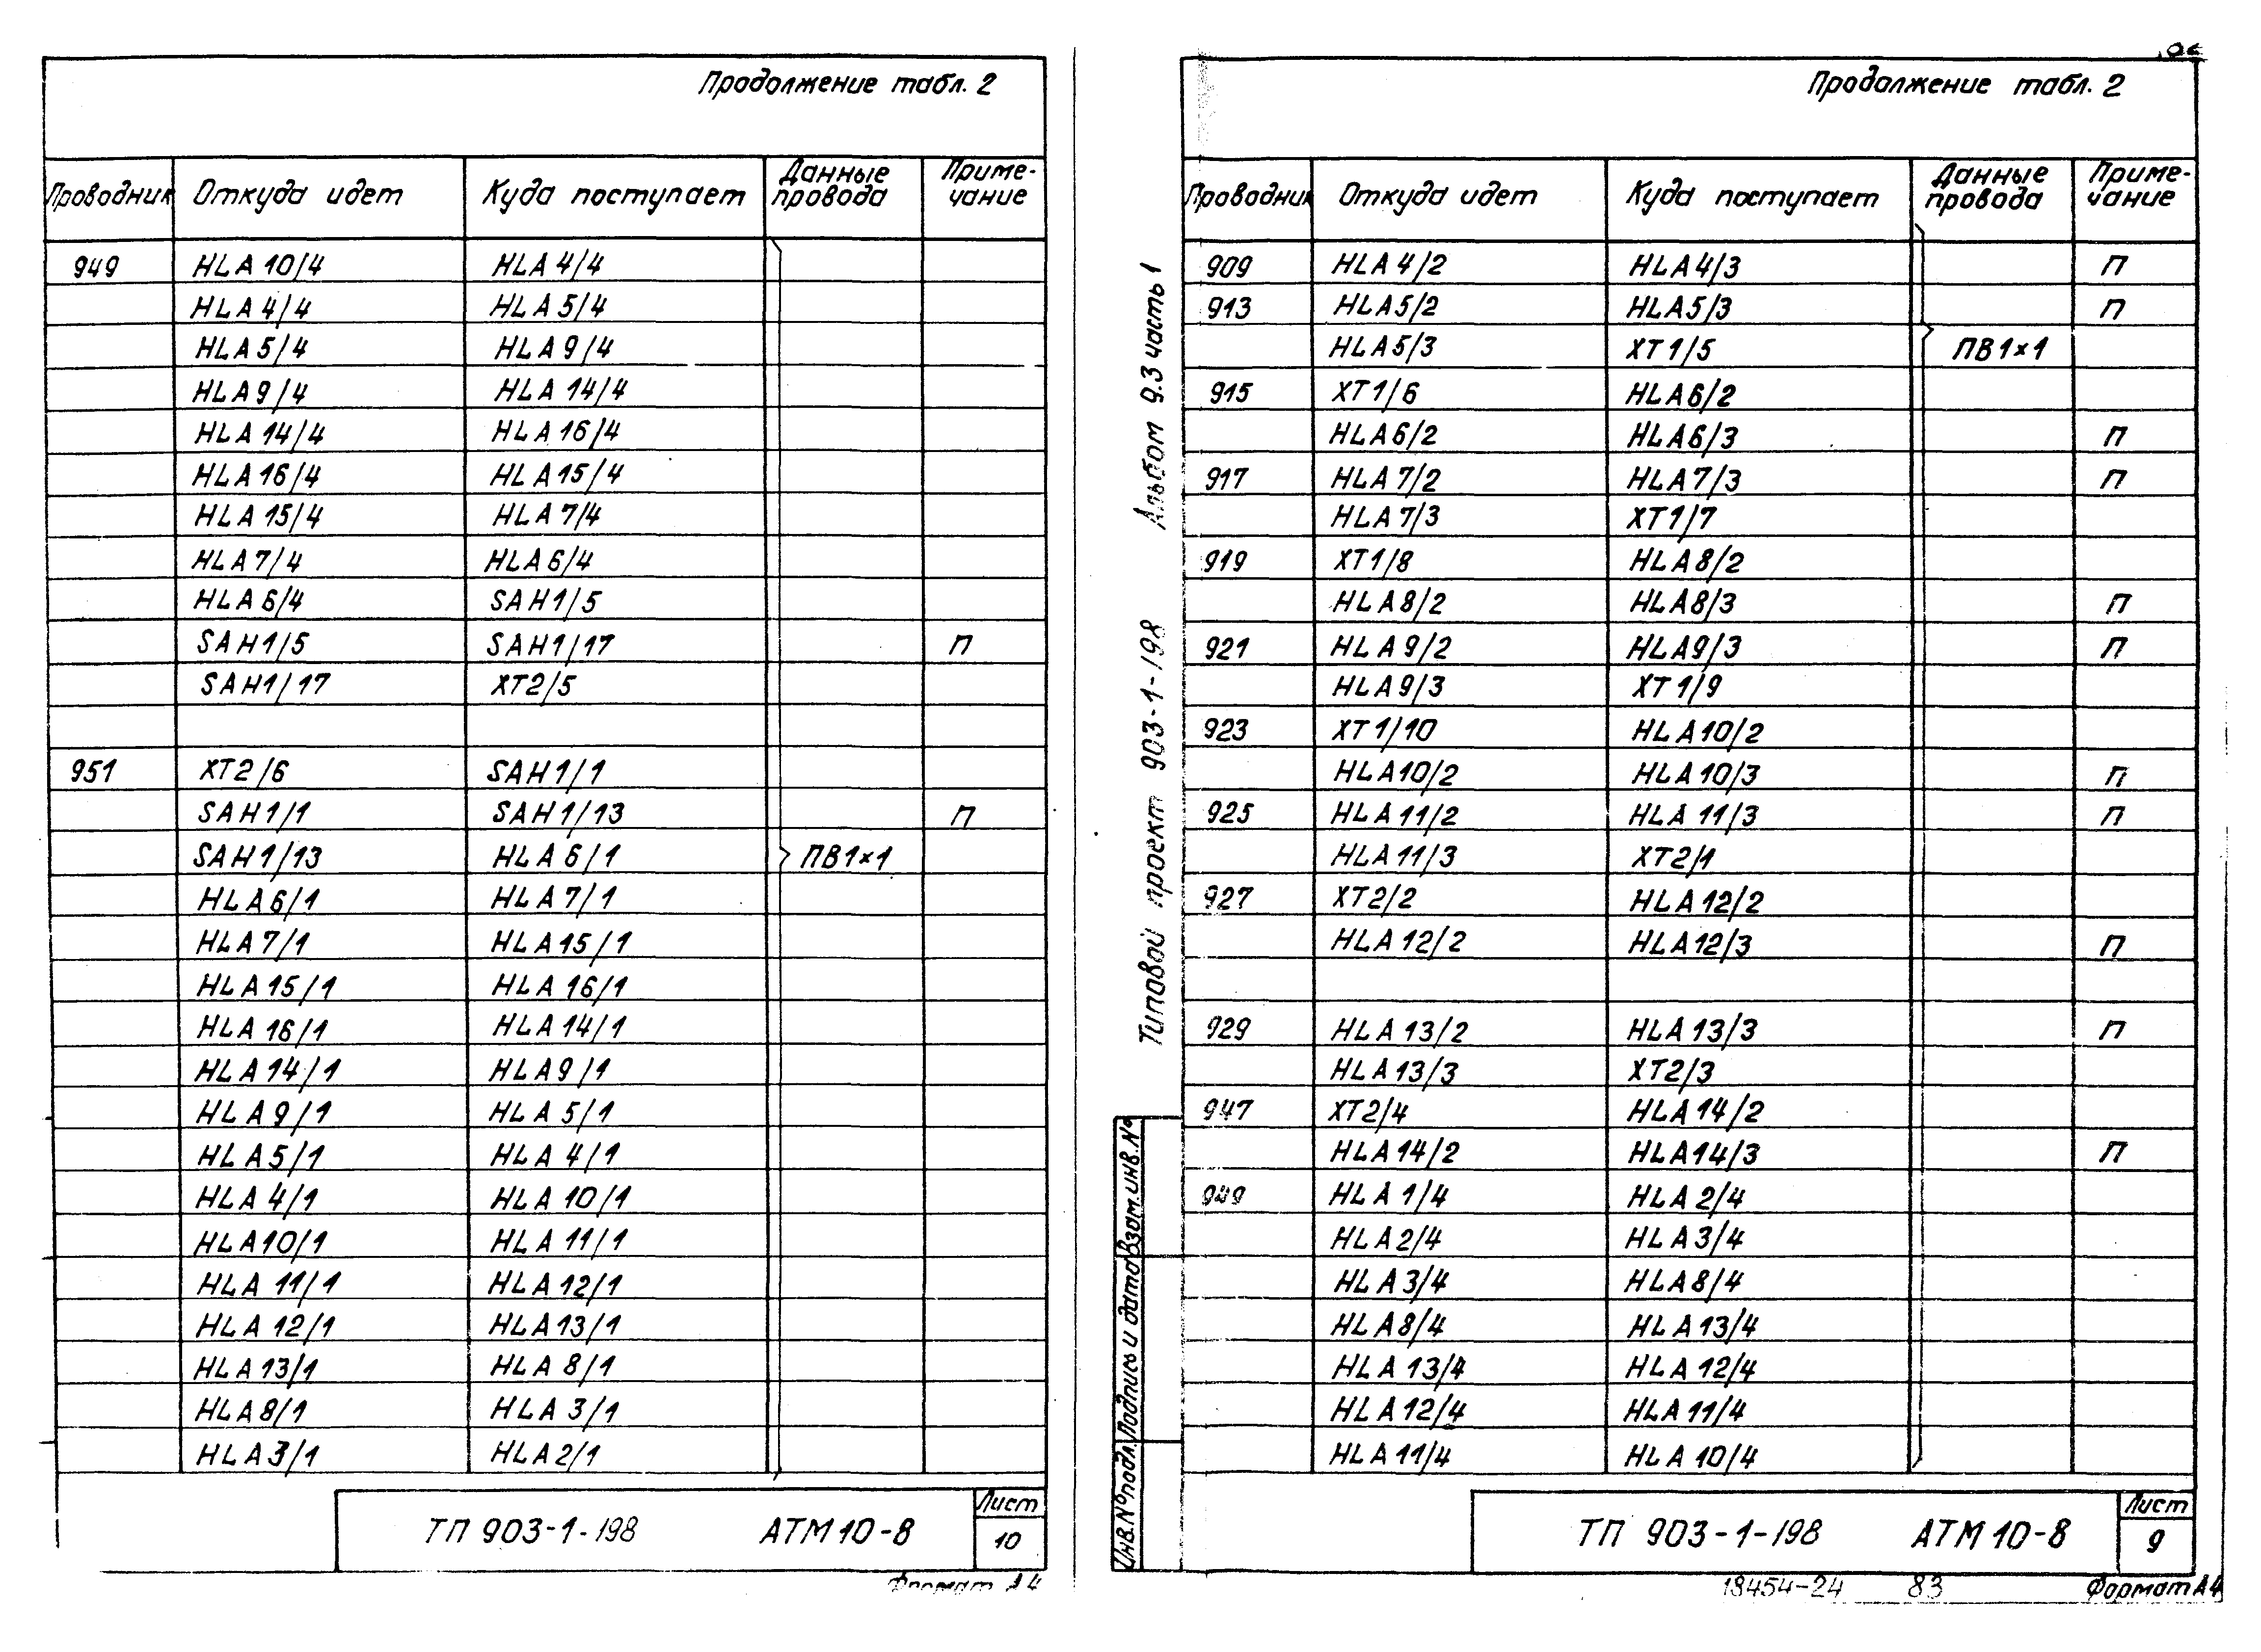 Продолжение табл. 2
Проводник Откуда идет Куда поступает Данные провода Примечание
949 HLA10/4 HLA4/4
HLA4/4 HLA5/4
HLA5/4 HLA9/4
HLA9/4 HLA14/4
HLA14/4 HLA16/4
HLA16/4 HLA15/4
HLA15/4 HLA7/4
HLA7/4 HLA6/4
HLA6/4 SAH1/5
SAH1/5 SAH1/17 П
SAH1/17 XT2/5
951 XT2/6 SAH1/1
SAH1/1 SAH1/13 П
SAH1/13 HLA6/1 ПВ1×1
HLA6/1 HLA7/1
HLA7/1 HLA15/1
HLA15/1 HLA16/1
HLA16/1 HLA14/1
HLA14/1 HLA9/1
HLA9/1 HLA5/1
HLA5/1 HLA4/1
HLA4/1 HLA10/1
HLA10/1 HLA11/1
HLA11/1 HLA12/1
HLA12/1 HLA13/1
HLA13/1 HLA8/1
HLA8/1 HLA3/1
HLA3/1 HLA2/1
ТП 903-1-198 АТМ10-8
Лист
10
Формат А4
Типовой проект 903-1-198 Альбом 9.3 часть 1
Инв.№подл. Подпись и дата Взам.инв.№
Продолжение табл. 2
Проводник Откуда идет Куда поступает Данные провода Примечание
909 HLA4/2 HLA4/3 П
913 HLA5/2 HLA5/3 П
HLA5/3 XT1/5 ПВ1×1
915 XT1/6 HLA6/2
HLA6/2 HLA6/3 П
917 HLA7/2 HLA7/3 П
HLA7/3 XT1/7
919 XT1/8 HLA8/2
HLA8/2 HLA8/3 П
921 HLA9/2 HLA9/3 П
HLA9/3 XT1/9
923 XT1/10 HLA10/2
HLA10/2 HLA10/3 П
925 HLA11/2 HLA11/3 П
HLA11/3 XT2/1
927 XT2/2 HLA12/2
HLA12/2 HLA12/3 П
929 HLA13/2 HLA13/3 П
HLA13/3 XT2/3
947 XT2/4 HLA14/2
HLA14/2 HLA14/3 П
949 HLA1/4 HLA2/4
HLA2/4 HLA3/4
HLA3/4 HLA8/4
HLA8/4 HLA13/4
HLA13/4 HLA12/4
HLA12/4 HLA11/4
HLA11/4 HLA10/4
ТП 903-1-198 АТМ10-8
Лист
9
18454-24 83 Формат А4